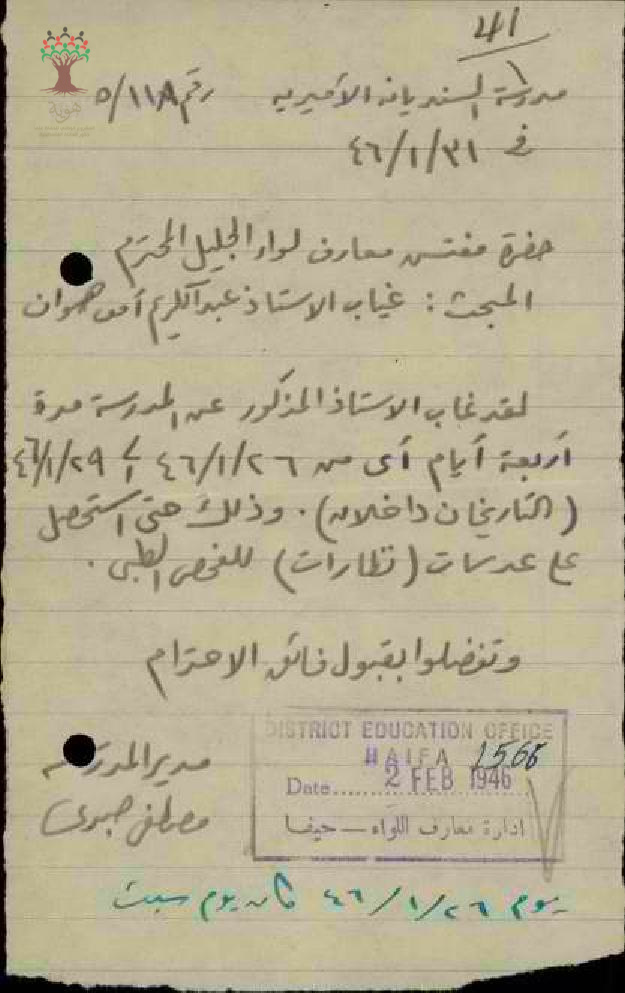 41
مدرسة السنديانه الاميريه رقم ٥/١١٨
في ٤٦/١/٣١
حضرة مفتش معارف لواء الجليل المحترم
المبحث : غياب الاستاذ عبد الكريم
لقد غاب الاستاذ المذكور عن المدرسة مدة
أربعة أيام أى من ٤٦/١/٢٦ الى ٤٦/١/٢٩
(التاريخان داخلان) . وذلك حتى استحصل
على عدسات (نظارات) للفحص الطبي .
وتفضلوا بقبول فائق الاحترام
مدير المدرسة
مصطفى صبري
DISTRICT EDUCATION OFFICE
HAIFA 1566
Date 2 FEB 1946
ادارة معارف اللواء — حيفا
يوم ٤٦/١/٢٦ كان يوم سبت
هوية